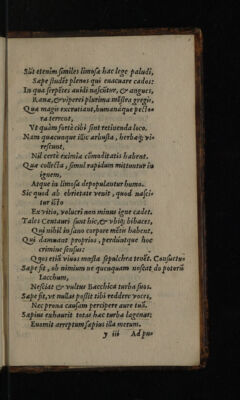 Sũt etenim similes limosa hac lege paludi,
Sæpe studẽt plenos qui euacuare cados:
In qua serpẽtes auidi nascũtur, & angues,
Ranæ, & viperei plurima mõstra gregis,
Quæ magis excrutiant, humanáque pecto-
ra terrent,
Vt quàm fortè cibi sint retiuenda loco.
Nam quæcunque illic arbusta, herbæq; vi-
rescunt,
Nil certè eximiæ cõmoditatis habent.
Quæ collecta, simul rapidum mittuntur in
ignem,
Atque in limosa depopulantur humo.
Sic quod ab ebrietate venit, quod nasci-
tur isto
Ex vitio, volucri non minus igne cadet.
Tales Centauri sunt hîc, & vbiq; bibaces,
Qui nihil in sano corpore mẽtis habent,
Qui damnant proprios, perdúntque hoc
crimine sensus:
Quos etiã viuos mœsta sepulchra tenẽt.
Sæpe sit, ob nimium ne qucuquam noscat de poterũ
Iacchum,
Nesciat & vultus Bacchica turba suos.
Sæpe sit, vt nullas possit tibi reddere voces,
Nec prona causam percipere aure tuã.
Sæpius exhaurit totas hæc turba lagenas:
Euomit arreptum sæpius illa merum.
y iii Ad pu-